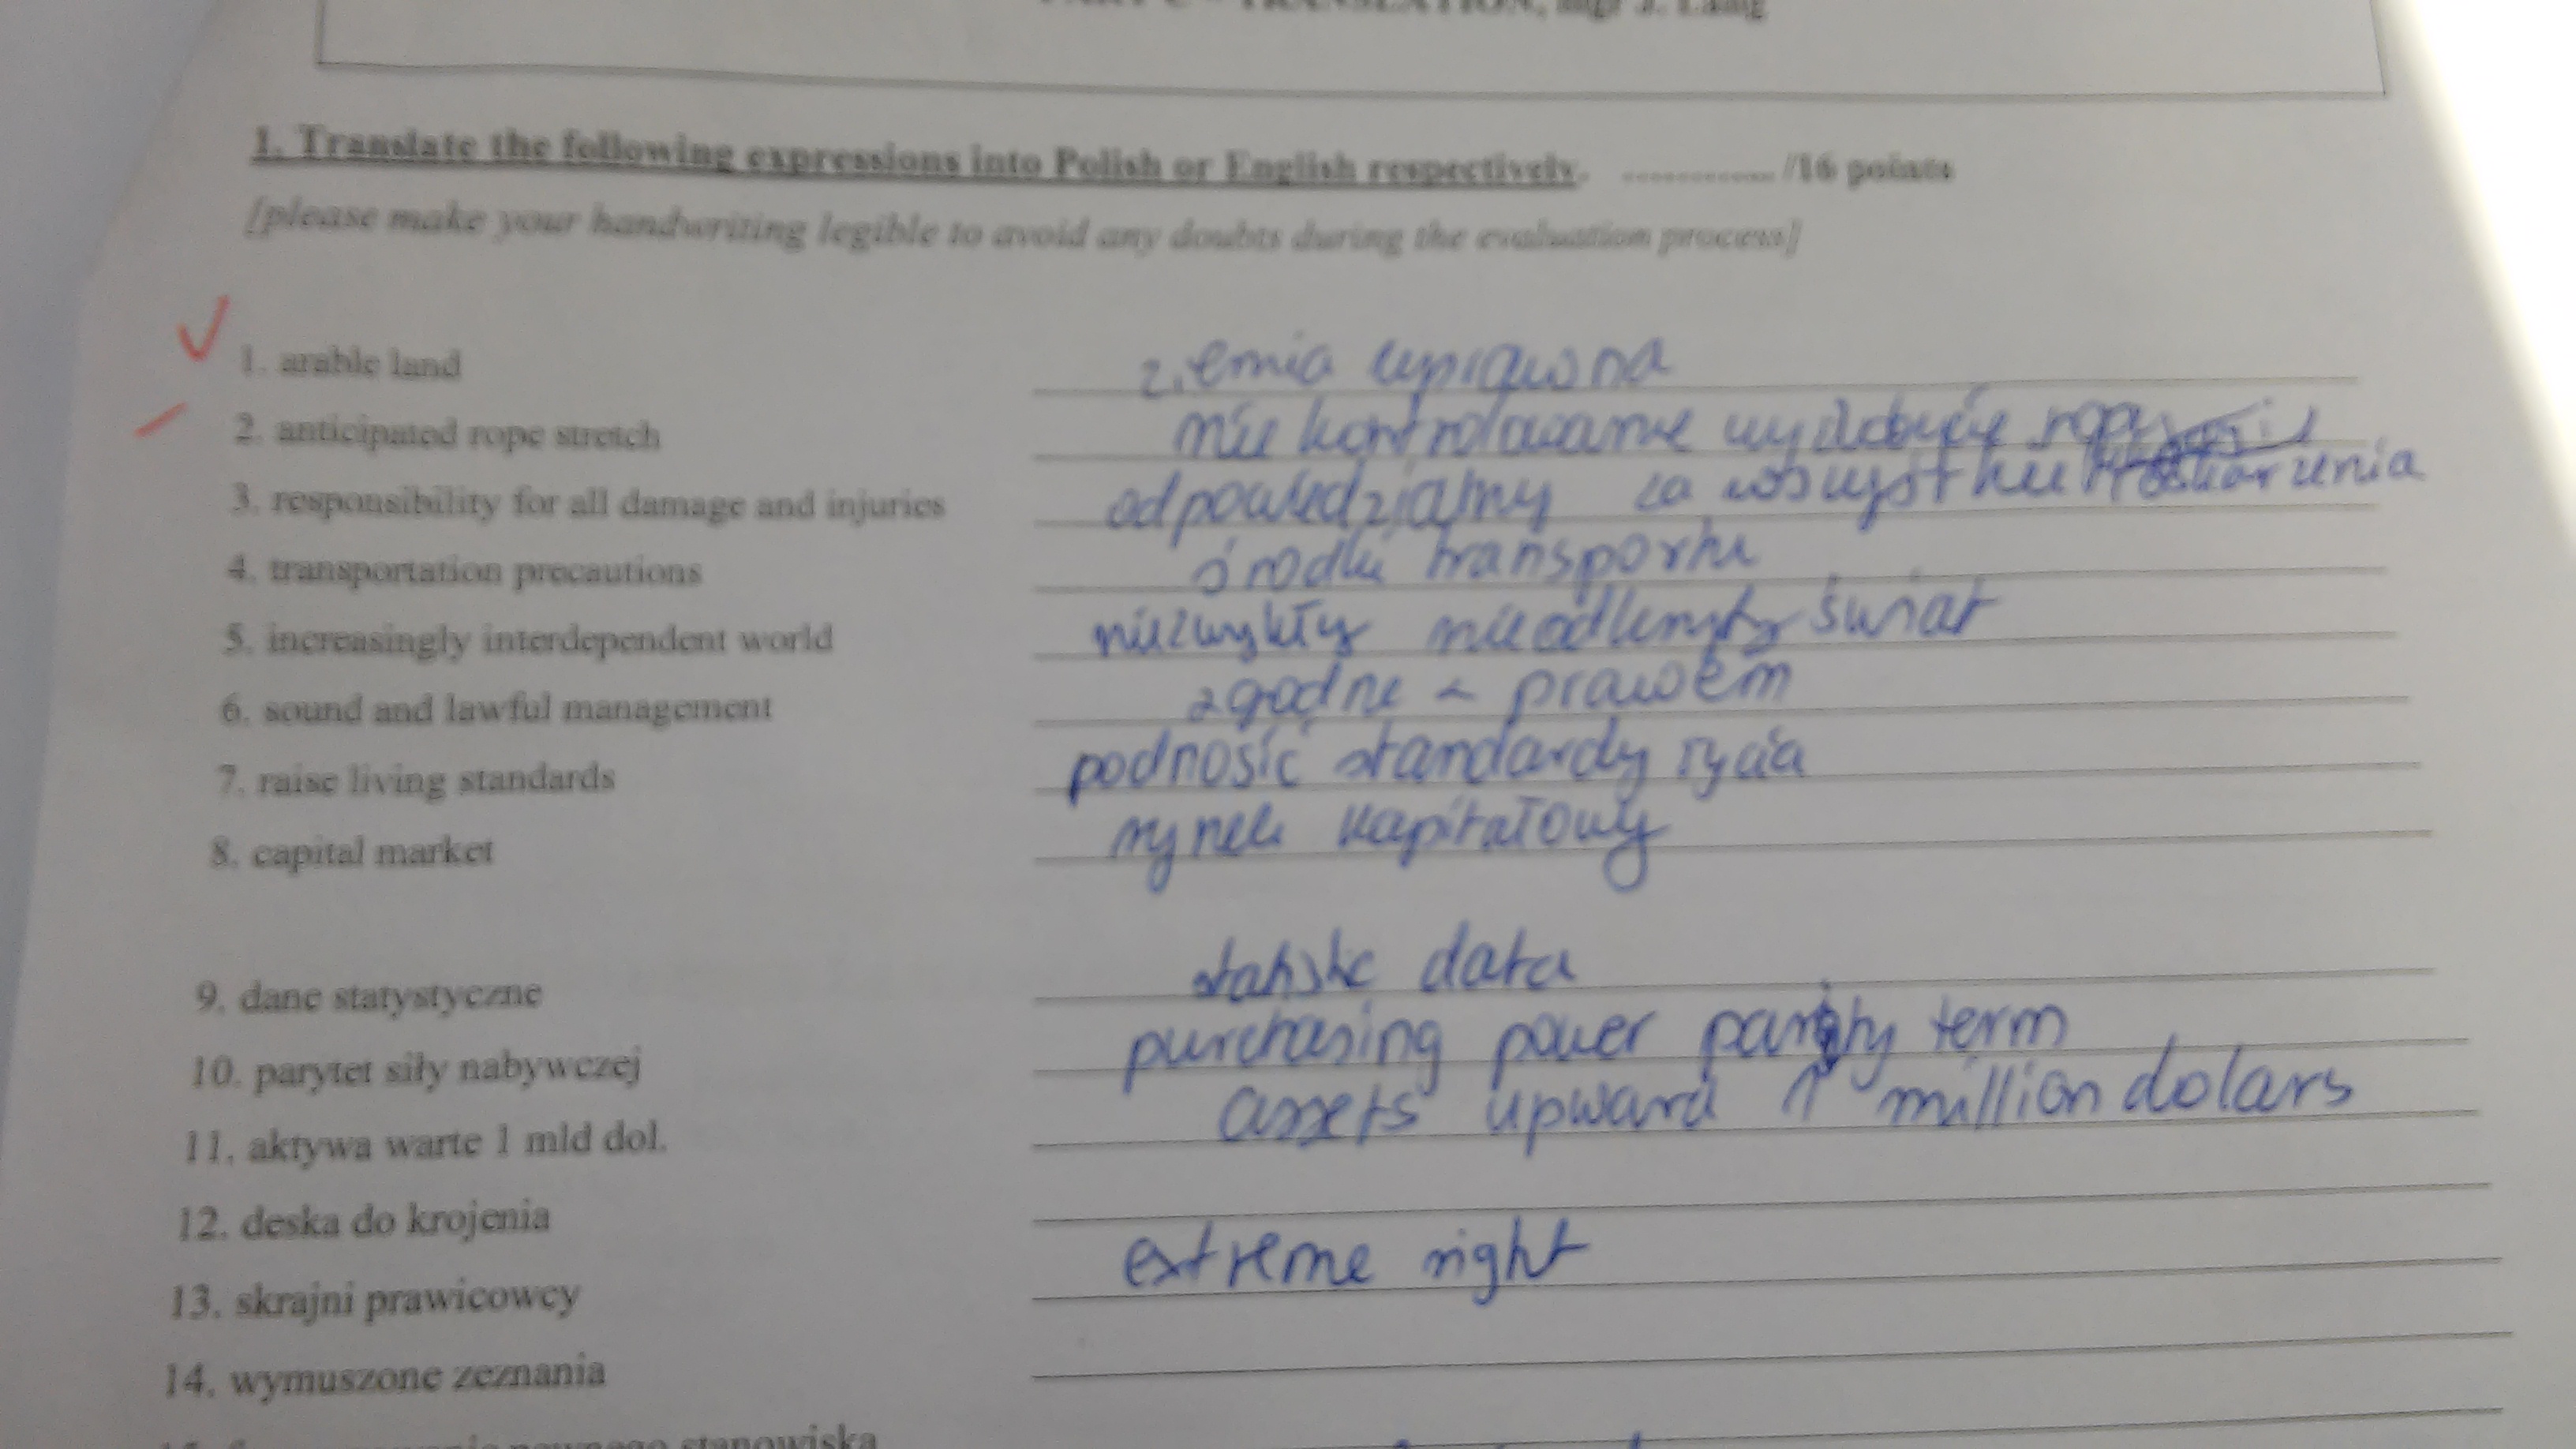 TRANSLATION, mgr J.
1. Translate the following expressions into Polish or English respectively. ............ /16 points
[please make your handwriting legible to avoid any doubts during the evaluation process]
1. arable land ziemia uprawna
2. anticipated rope stretch nie kontrolowanie wydobycie ropy
3. responsibility for all damage and injuries odpowiedzialny za wszystkie
4. transportation precautions środki transportu
5. increasingly interdependent world niezwykły nieodległy świat
6. sound and lawful management zgodne z prawem
7. raise living standards podnosić standardy życia
8. capital market rynek kapitałowy
9. dane statystyczne statistic data
10. parytet siły nabywczej purchasing power parity term
11. aktywa warte 1 mld dol. assets upward 1 million dolars
12. deska do krojenia
13. skrajni prawicowcy extreme right
14. wymuszone zeznania
pewnego stanowiska